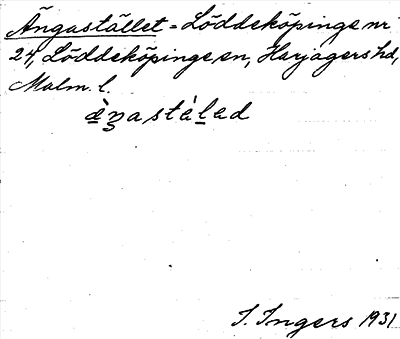 Ängastället = Löddeköpinge nr
24, Löddeköpinge sn, Harjagers hd,
Malm. l.
ὰ̱ŋastὰḻad
I. Ingers 1931